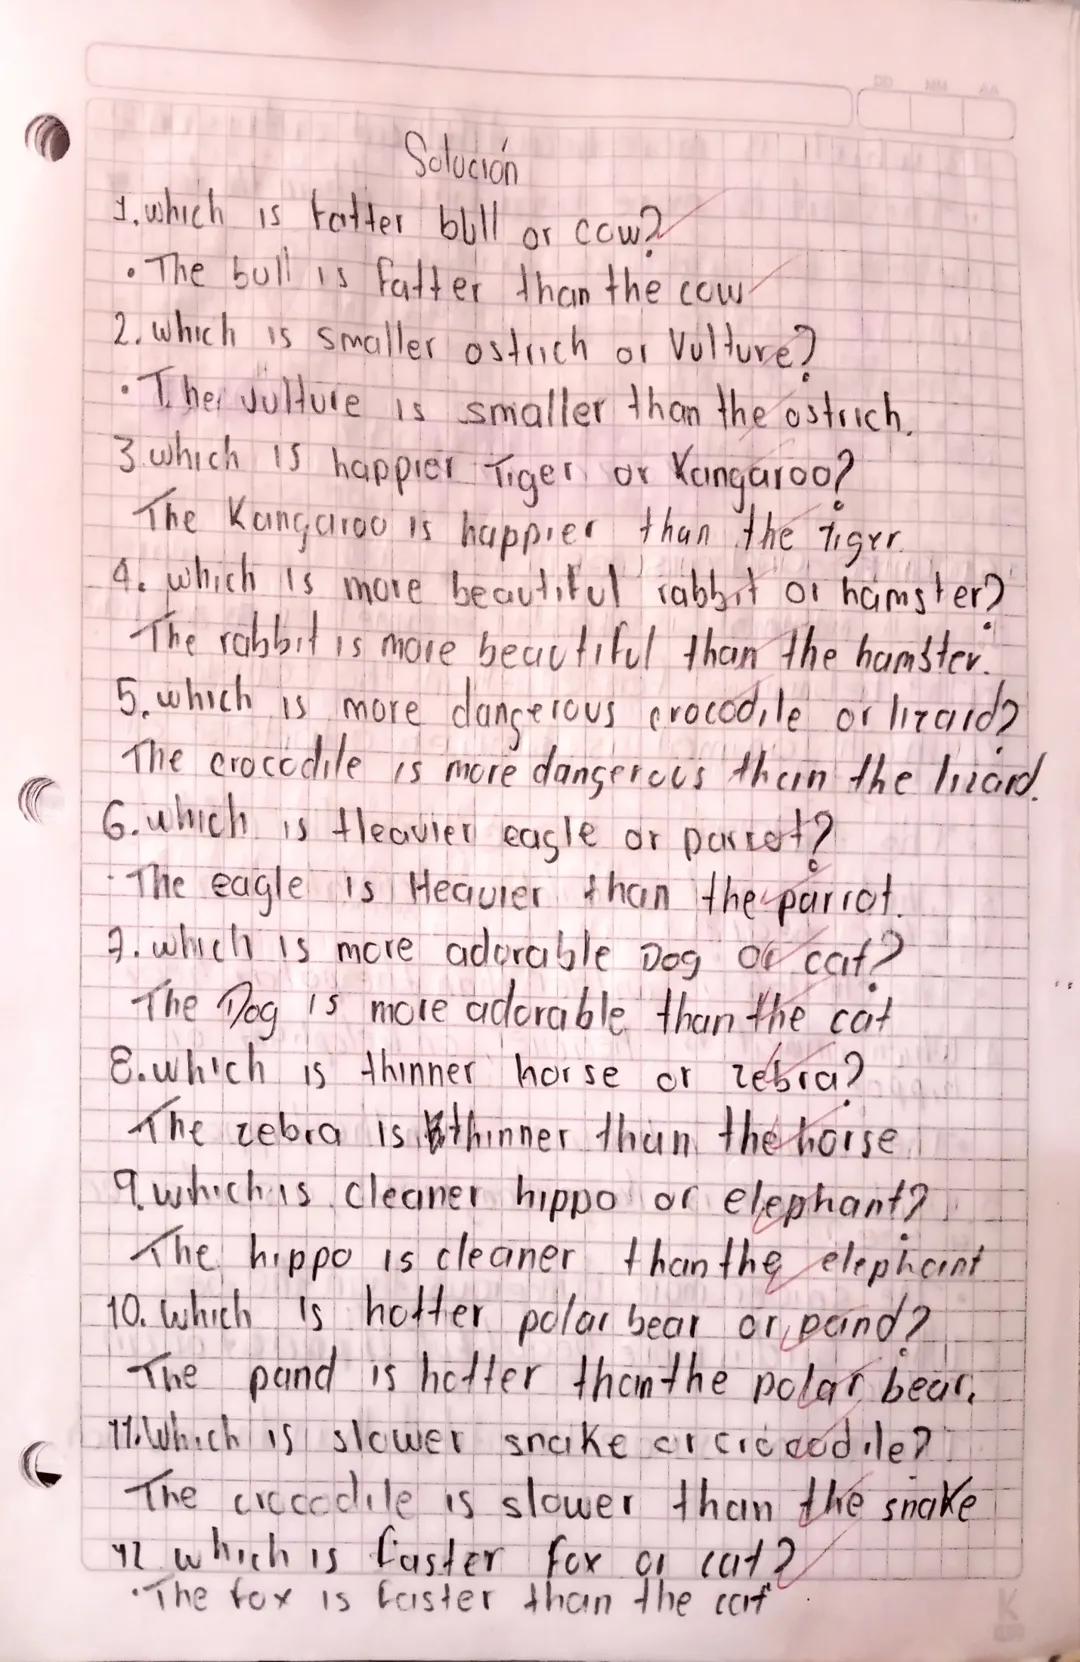 AA MM DD
Solución
1. which is fatter bull or cow?
• The bull is fatter than the cow
2. which is smaller ostrich or Vulture?
• The vulture is smaller than the ostrich.
3. which is happier Tiger or Kangaroo?
The Kangaroo is happier than the Tiger.
4. which is more beautiful rabbit or hamster?
The rabbit is more beautiful than the hamster.
5. which is more dangerous crocodile or lizard?
The crocodile is more dangerous than the lizard.
6. which is Heavier eagle or parrot?
· The eagle is Heavier than the parrot.
7. which is more adorable Dog or cat?
The Dog is more adorable than the cat
8. which is thinner horse or zebra?
The zebra is thinner than the horse
9. which is cleaner hippo or elephant?
The hippo is cleaner than the elephant
10. Which is hotter polar bear or pand?
The pand is hotter than the polar bear.
11. Which is slower snake or crocodile?
The crocodile is slower than the snake
12 which is faster fox or cat?
• The fox is faster than the cat
K